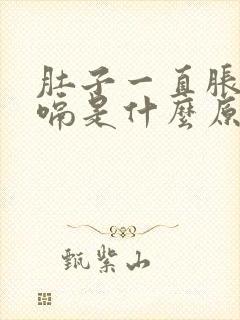 肚子一直脹
嗝是什麼原
甄紫山